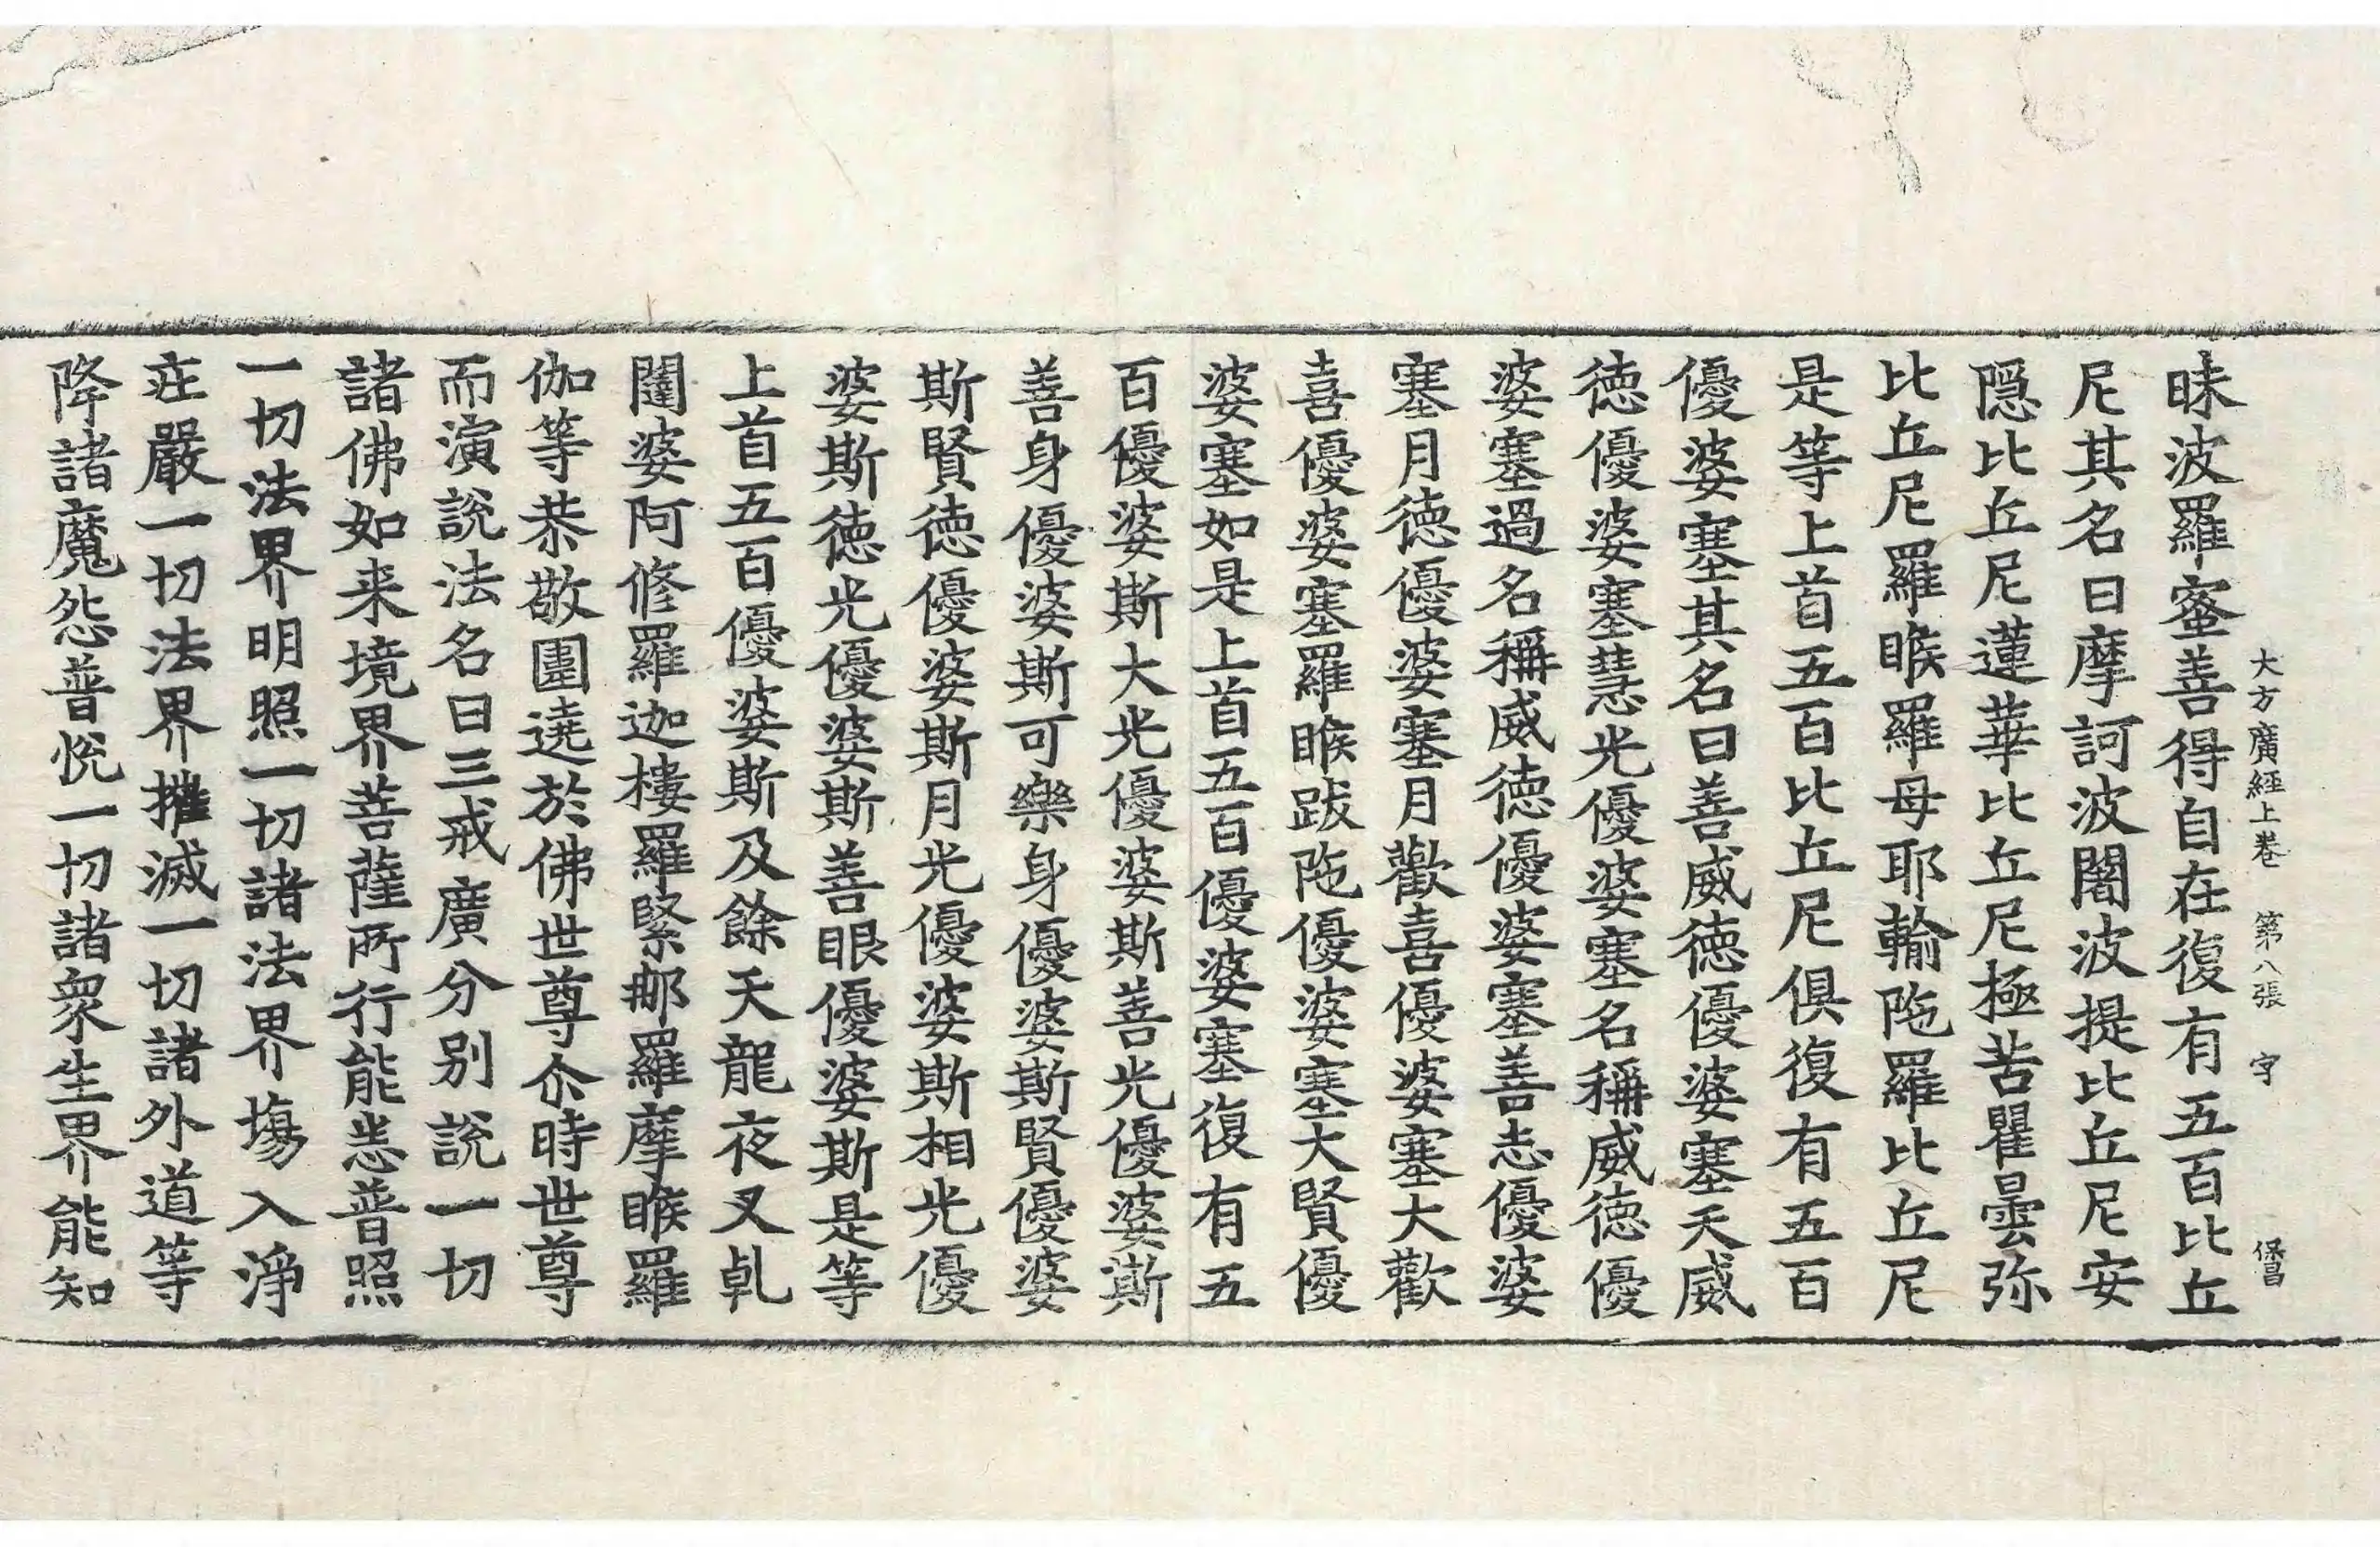 大方廣經上卷 第八張 字
昧波羅蜜善得自在復有五百比丘
尼其名曰摩訶波闍波提比丘尼安
隠比丘尼蓮華比丘尼極苦瞿曇弥
比丘尼羅睺羅母耶輸陁羅比丘尼
是等上首五百比丘尼俱復有五百
優婆塞其名曰善威徳優婆塞天威
徳優婆塞慧光優婆塞名稱威徳優
婆塞過名稱威徳優婆塞善志優婆
塞月徳優婆塞月歡喜優婆塞大歡
喜優婆塞羅睺跋陁優婆塞大賢優
婆塞如是上首五百優婆塞復有五
百優婆斯大光優婆斯善光優婆斯
善身優婆斯可樂身優婆斯賢優婆
斯賢徳優婆斯月光優婆斯相光優
婆斯徳光優婆斯善眼優婆斯是等
上首五百優婆斯及餘天龍夜叉乹
闥婆阿修羅迦樓羅緊那羅摩睺羅
伽等恭敬圍遶於佛世尊尒時世尊
而演説法名曰三戒廣分别説一切
諸佛如来境界菩薩所行能悉普照
一切法界明照一切諸法界塲入淨
庄嚴一切法界摧滅一切諸外道等
降諸魔怨普悦一切諸衆生界能知